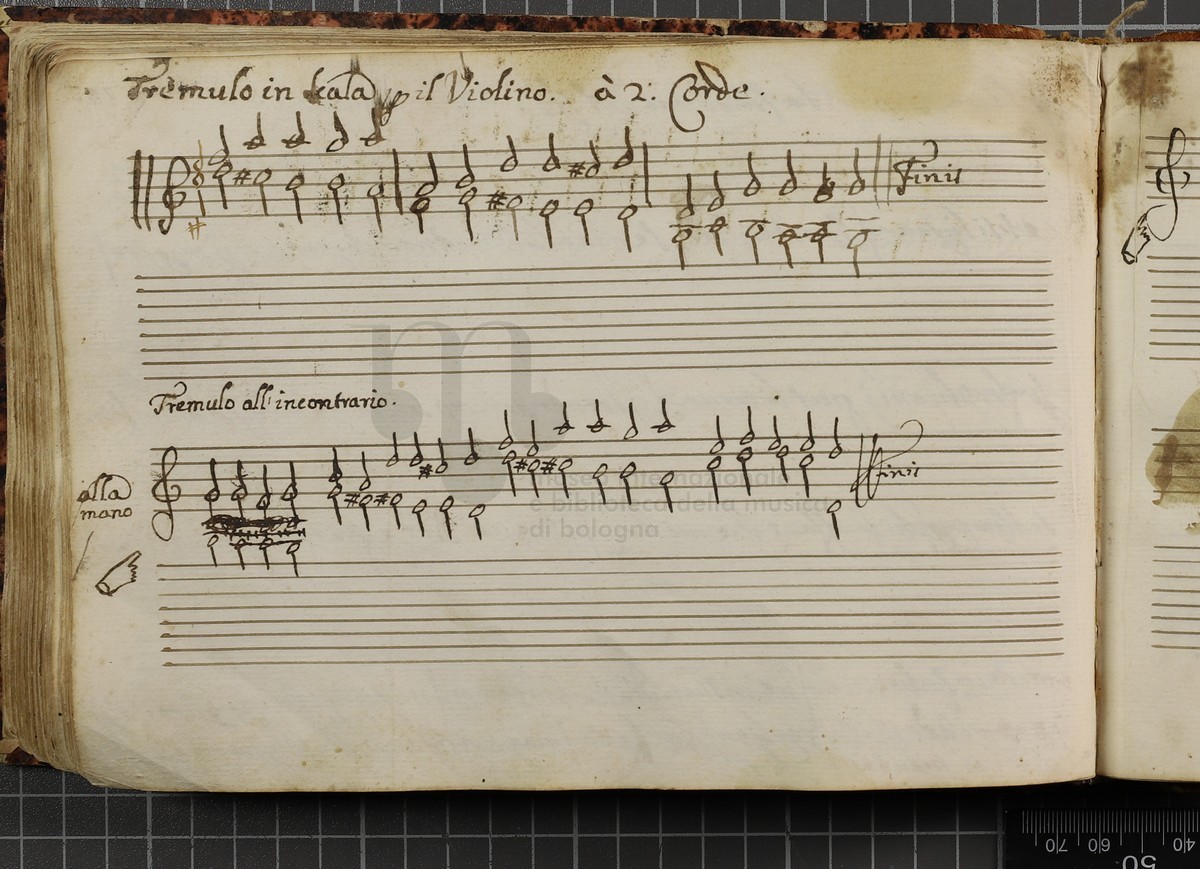 Tremulo in scala p il Violino. à 2: Corde.
Finis
Tremulo all' incontrario.
alla
mano
finis
museo internazionale
e biblioteca della musica
di bologna
40
50
60
70